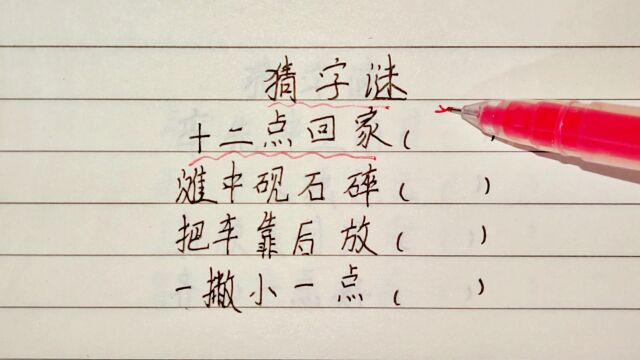 猜字谜
十二点回家( )
滩中砚石碎( )
把车靠后放( )
一撇小一点( )